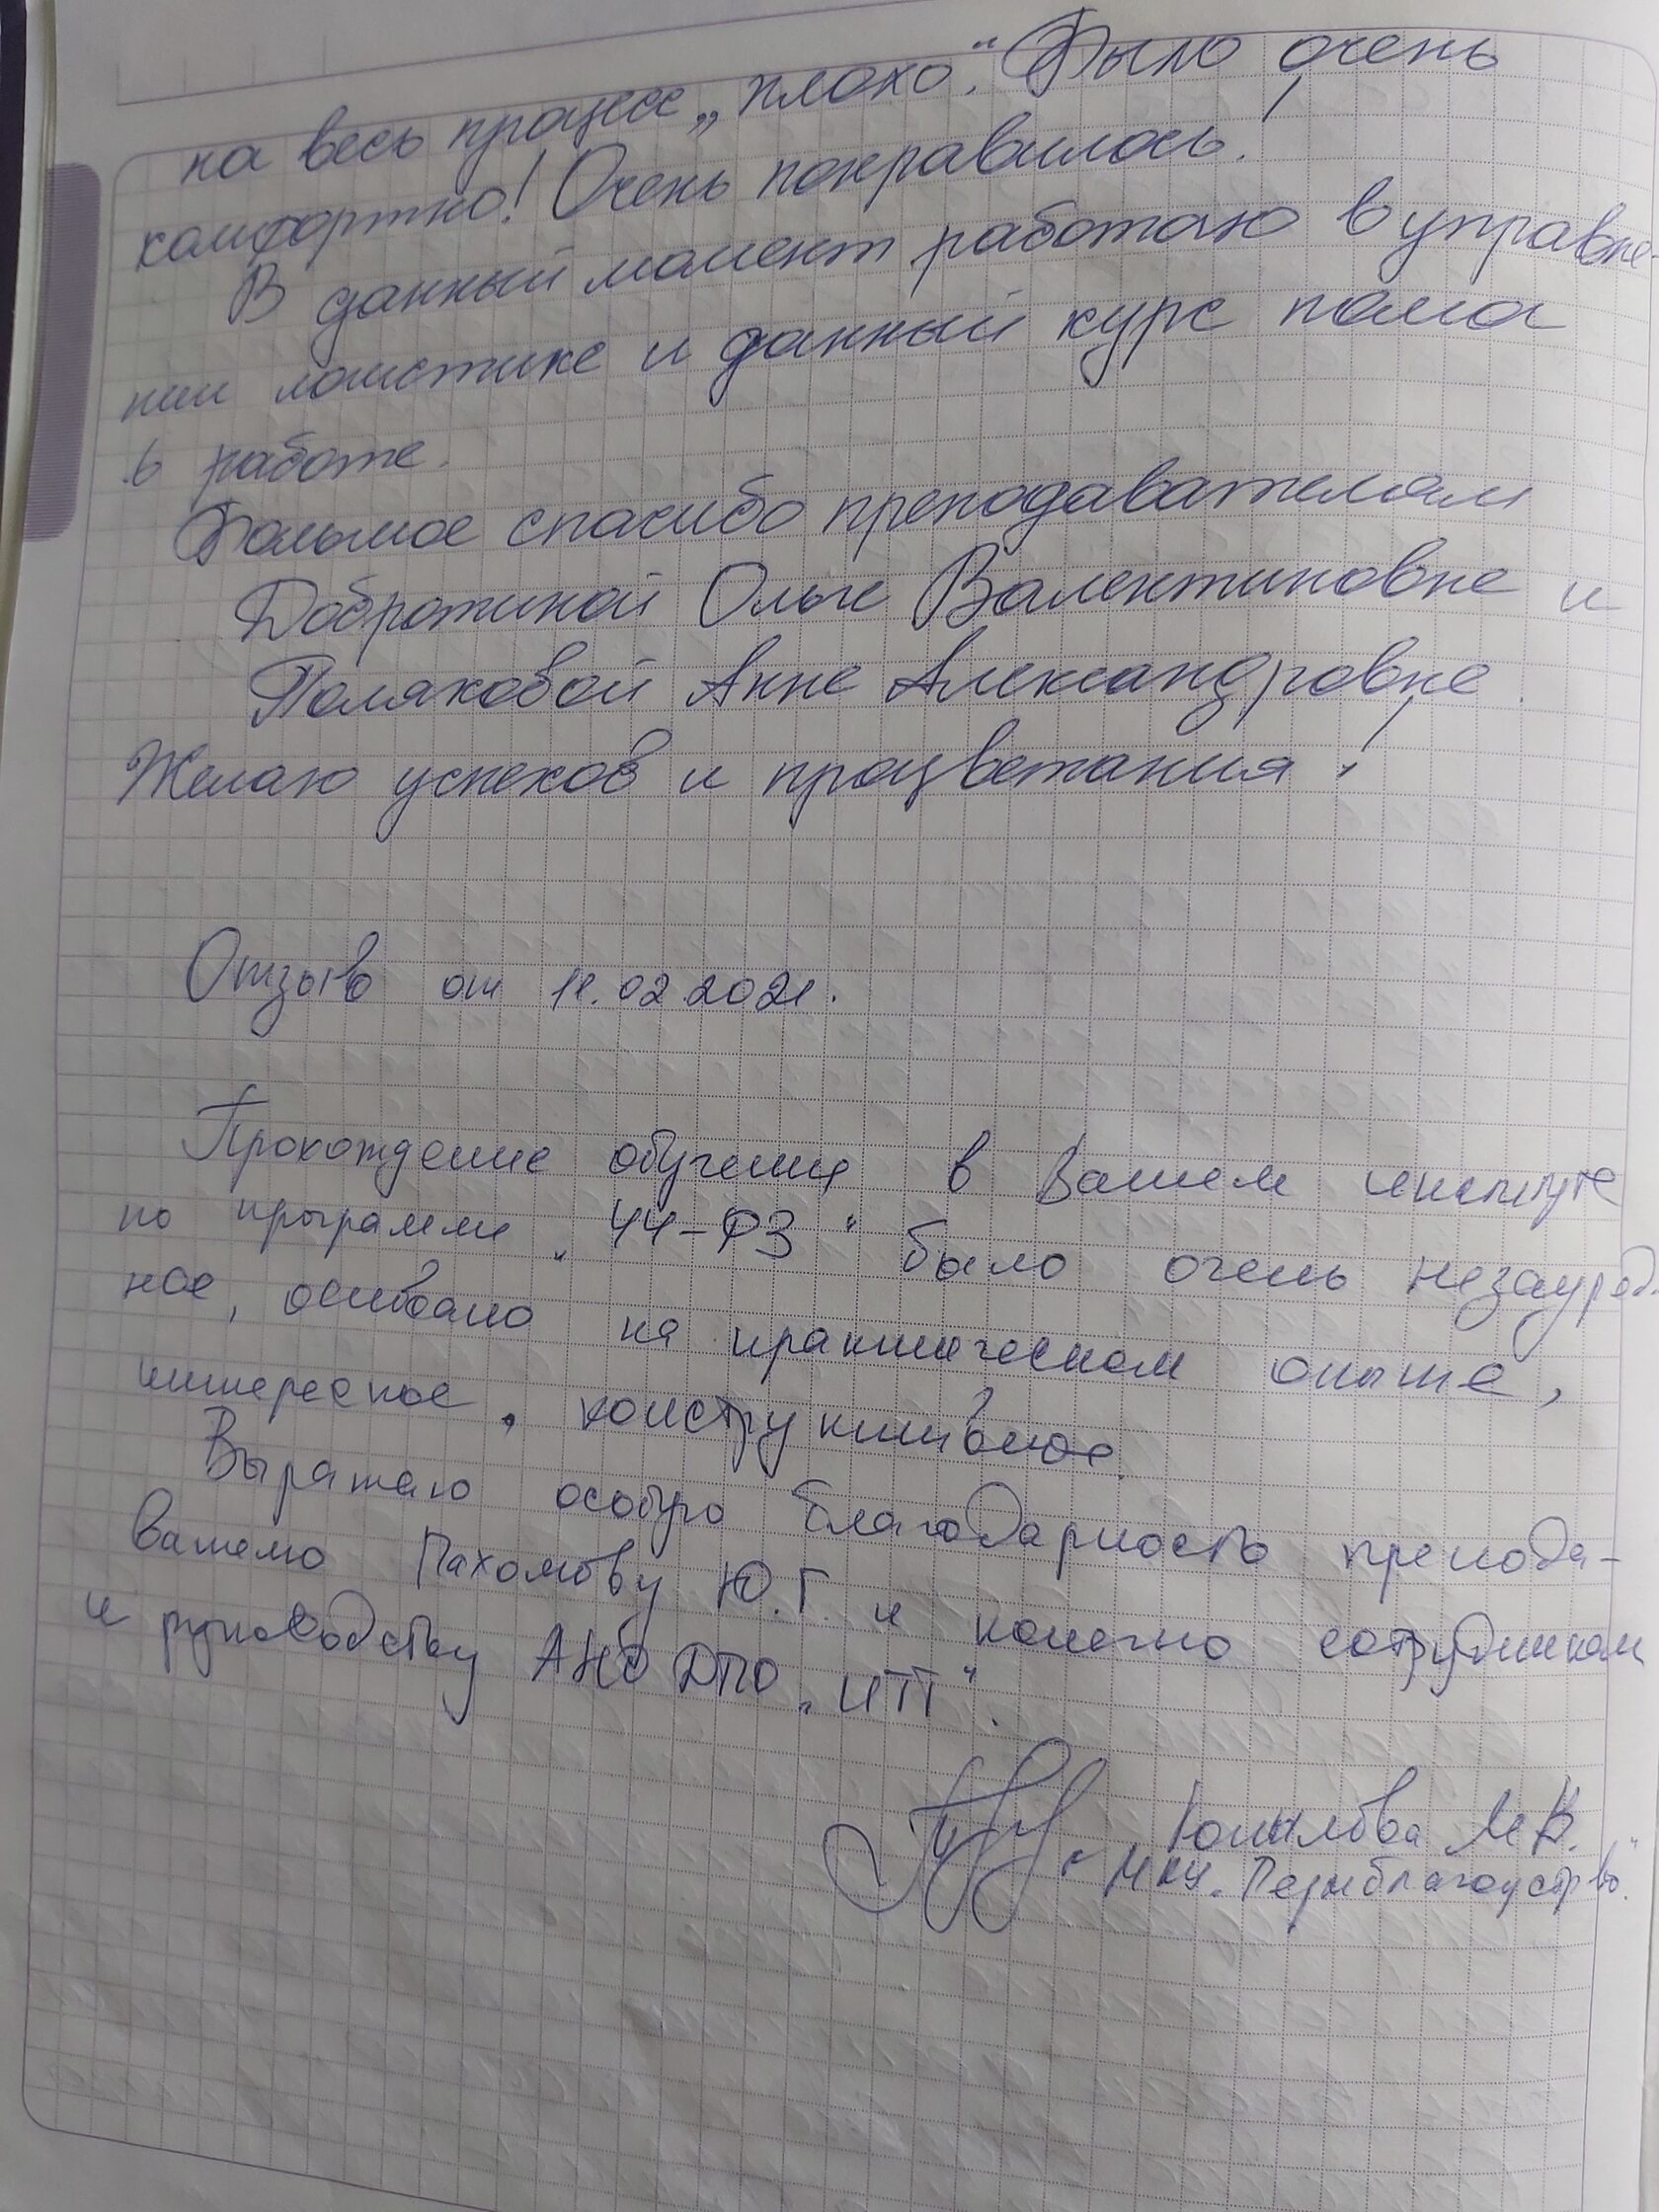 на весь процесс „плохо“. Было очень
комфортно! Очень понравилось!
В данный момент работаю в управле-
нии логистике и данный курс помог
в работе.
Большое спасибо преподавателям
Добротиной Ольге Валентиновне и
Поляковой Анне Александровне.
Желаю успехов и процветания!
Отзыв от 11.02.2021.
Прохождение обучения в Вашем институте
по программе „44-ФЗ“ было очень незауряд.
ное, основано на практическом опыте,
интересное, конструктивное.
Выражаю особую благодарность препода-
вателю Пахомову Ю.Г. и конечно сотрудникам
и руководству АНО ДПО „ИПП“.
М.В.
МКУ